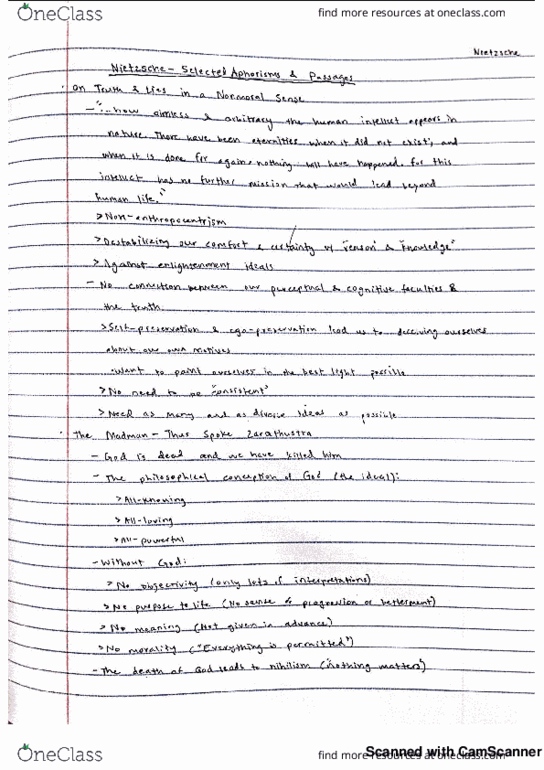 OneClass
find more resources at oneclass.com
Nietzsche
Nietzsche - Selected Aphorisms & Passages
· On Truth & Lies in a Nonmoral Sense
- "...how aimless & arbitrary the human intellect appears in
nature. There have been eternities when it did not exist; and
when it is done for again, nothing will have happened. For this
intellect has no further mission that would lead beyond
human life."
> Non-anthropocentrism
> Destabilizing our comfort & certainty of "reason" & "knowledge"
> Against enlightenment ideals
- No connection between our perceptual & cognitive faculties &
the truth
> Self-preservation & ego-preservation lead us to deceiving ourselves
about our own motives
· want to paint ourselves in the best light possible
> No need to be "consistent"
> Need as many and as diverse ideas as possible
· The Madman - Thus Spoke Zarathustra
- God is dead and we have killed him
- The philosophical conception of God (the ideal):
> All-knowing
> All-loving
> All-powerful
- Without God:
> No objectivity (only lots of interpretations)
> No purpose to life (No sense of progression or betterment)
> No meaning (Not given in advance)
> No morality ("Everything is permitted")
- The death of God leads to nihilism ("nothing matters")
OneClass
find more resources at oneclass.com
Scanned with CamScanner